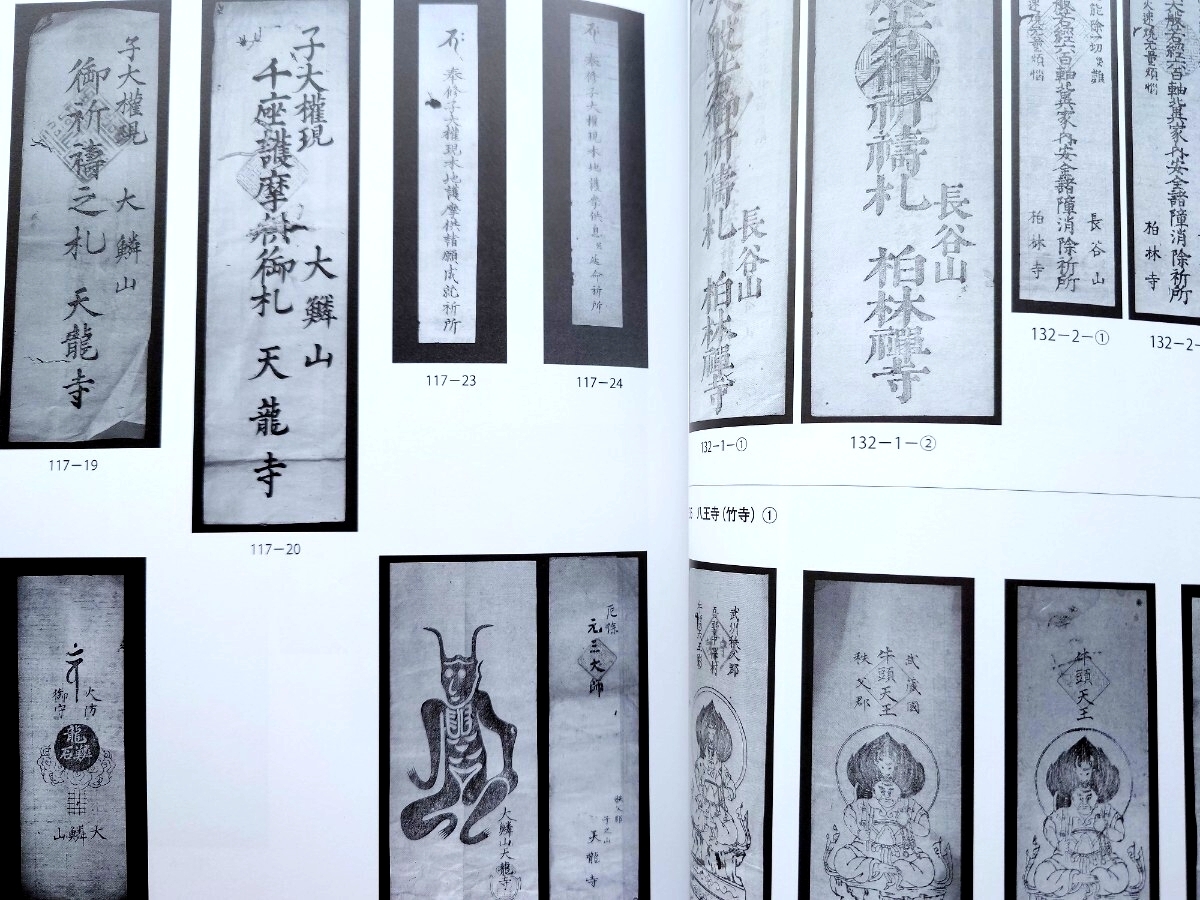 子大權現
御祈禱之札
大鱗山
天龍寺
117−19
子大權現
千座護摩供御札
大鱗山
天龍寺
117−20
奉修子大權現本地護摩供諸願成就祈所
117−23
奉修子大權現本地護摩供息災延命祈所
117−24
御祈禱札
長谷山
柏林禪寺
132−1−①
祈禱札
長谷山
柏林禪寺
132−1−②
能除一切
家内安全諸障消除祈所
長谷山
柏林寺
132−2−①
家内安全諸障消除祈所
柏林寺
132−2−
火防
御守
大鱗山
元三大師
天龍寺
大鱗山天龍寺
八王寺(竹寺)①
武州秩父郡
武蔵國
秩父郡
牛頭天王
牛頭天王